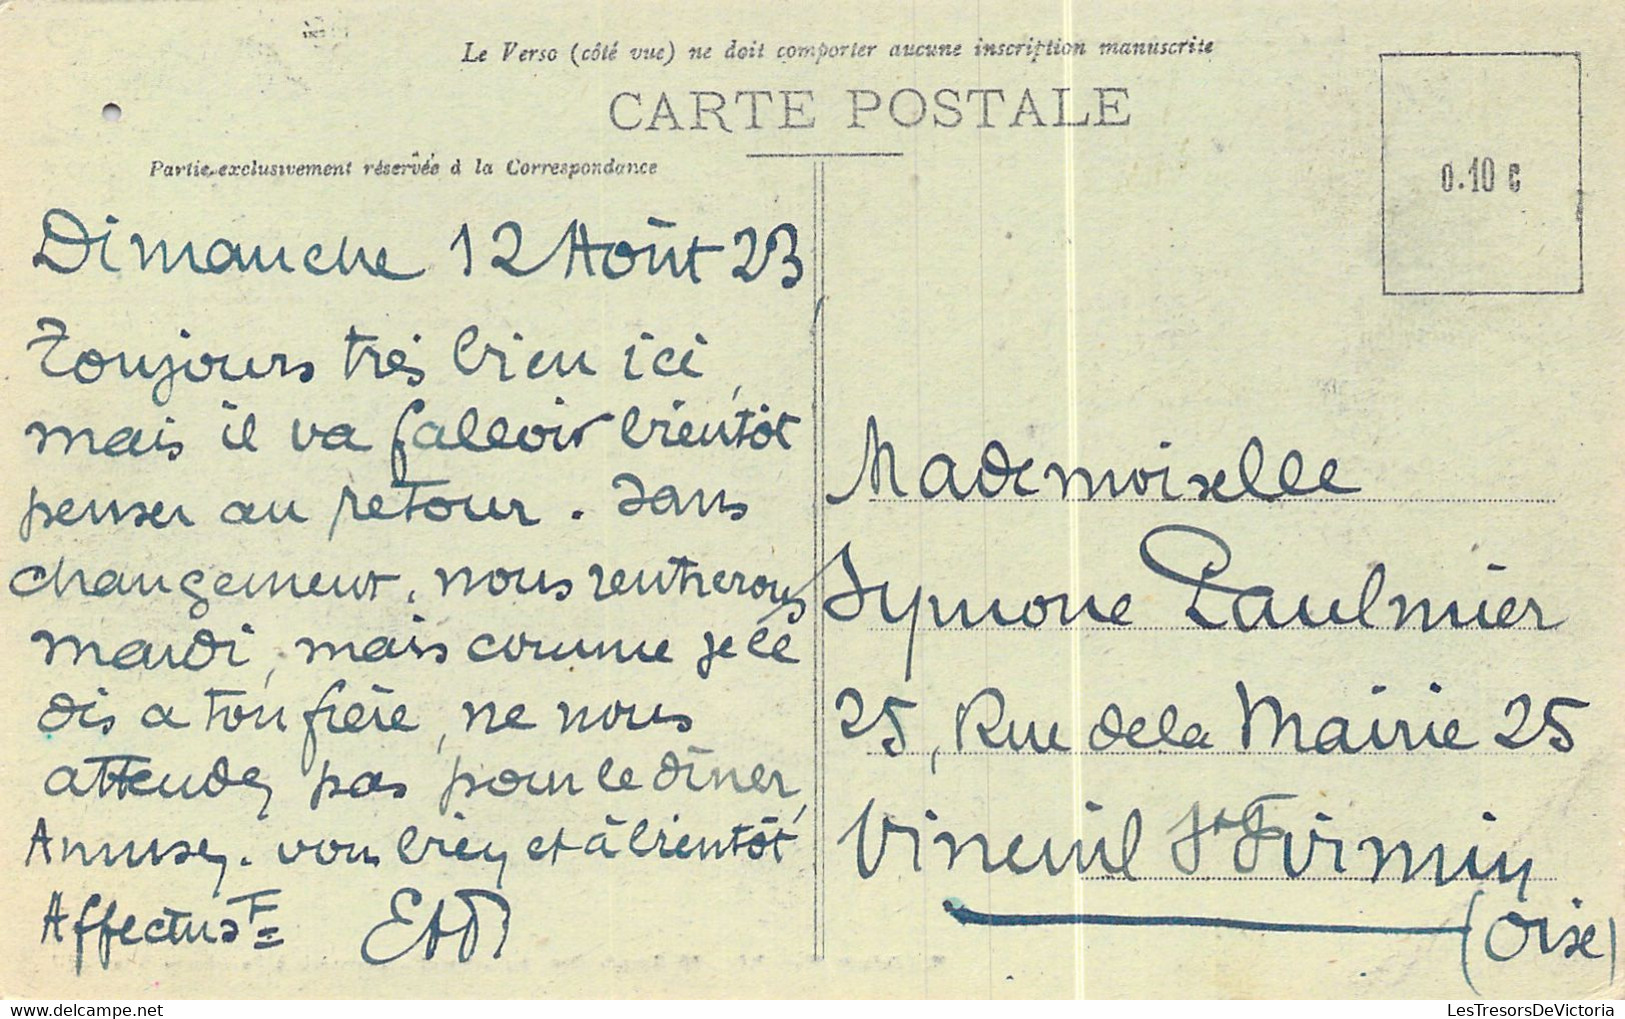 Le Verso (côté vue) ne doit comporter aucune inscription manuscrite
CARTE POSTALE
Partie exclusivement réservée à la Correspondance
0.10 c
Dimanche 12 Août 23
Toujours très bien ici,
mais il va falloir bientôt
penser au retour. Sans
changement. nous rentrerons
mardi, mais comme je le
dis a ton frère, ne nous
attendez pas pour le dîner,
Amusez-vous bien et à bientôt
Affectus
Mademoiselle
Symone Paulmier
25, Rue de la Mairie 25
Vineuil St Firmin
(Oise)
LesTresorsDeVictoria.com